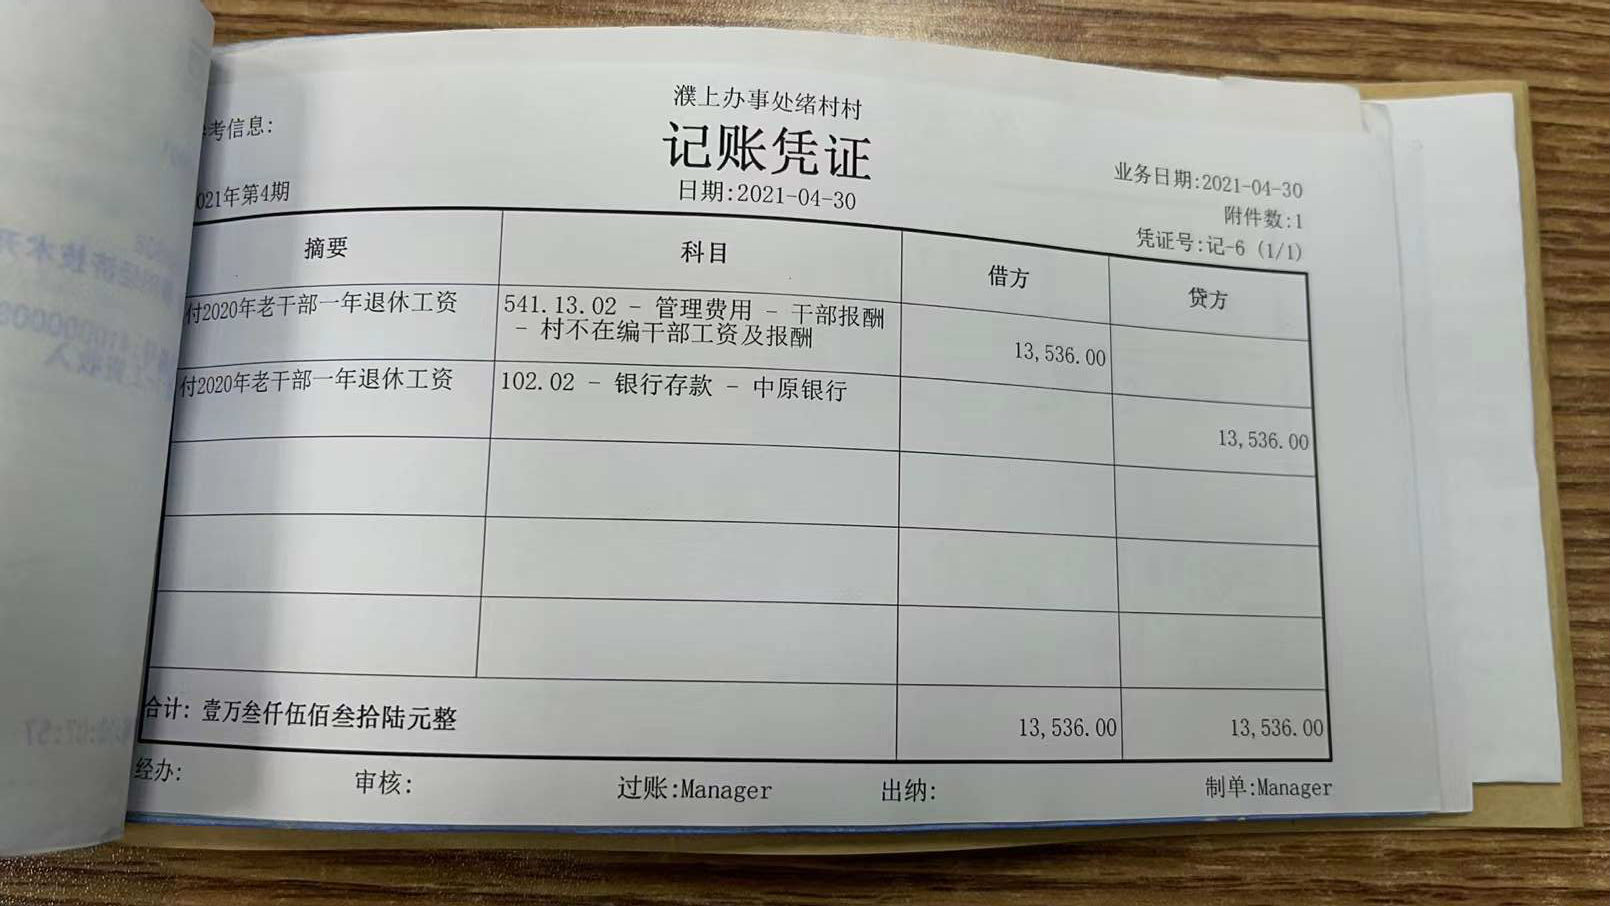 濮上办事处绪村村
考信息:
记账凭证
业务日期:2021-04-30
021年第4期
日期:2021-04-30
附件数:1
凭证号:记-6 (1/1)
摘要 科目 借方 贷方
付2020年老干部一年退休工资 541.13.02 - 管理费用 - 干部报酬
- 村不在编干部工资及报酬 13,536.00
付2020年老干部一年退休工资 102.02 - 银行存款 - 中原银行
13,536.00
合计: 壹万叁仟伍佰叁拾陆元整 13,536.00 13,536.00
经办: 审核: 过账:Manager 出纳: 制单:Manager